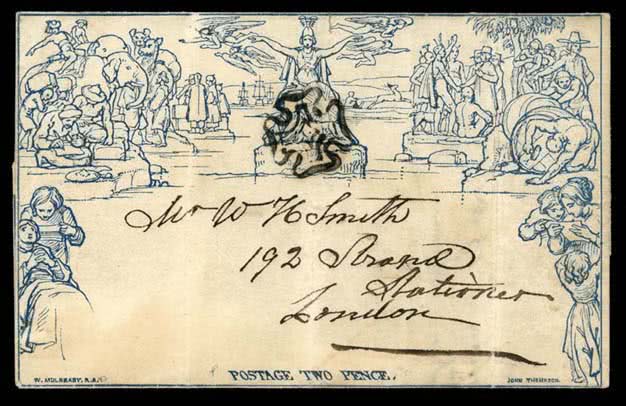 Mr W H Smith
192 Strand
Stationer
London
POSTAGE TWO PENCE.
W. MULREADY, R.A.
JOHN THOMPSON.